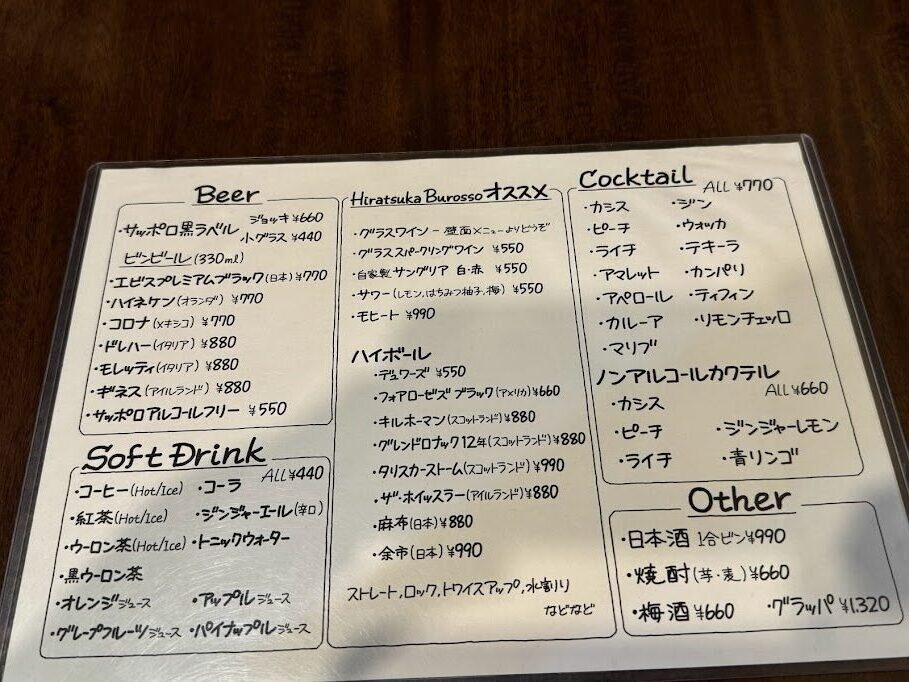 Beer
・サッポロ黒ラベル ジョッキ ¥660
小グラス ¥440
ビンビール (330ml)
・エビスプレミアムブラック(日本) ¥770
・ハイネケン(オランダ) ¥770
・コロナ(メキシコ) ¥770
・ドレハー(イタリア) ¥880
・モレッティ(イタリア) ¥880
・ギネス(アイルランド) ¥880
・サッポロアルコールフリー ¥550
Soft Drink
ALL ¥440
・コーヒー(Hot/Ice) ・コーラ
・紅茶(Hot/Ice) ・ジンジャーエール(辛口)
・ウーロン茶(Hot/Ice) ・トニックウォーター
・黒ウーロン茶
・オレンジジュース ・アップルジュース
・グレープフルーツジュース ・パイナップルジュース
Hiratsuka Burosso オススメ
・グラスワイン - 壁面メニューよりどうぞ
・グラススパークリングワイン ¥550
・自家製サングリア 白・赤 ¥550
・サワー(レモン,はちみつ柚子,梅) ¥550
・モヒート ¥990
ハイボール
・デュワーズ ¥550
・フォアローゼズ ブラック(アメリカ) ¥660
・キルホーマン(スコットランド) ¥880
・グレンドロナック12年(スコットランド) ¥880
・タリスカーストーム(スコットランド) ¥990
・ザ・ホイッスラー(アイルランド) ¥880
・麻布(日本) ¥880
・余市(日本) ¥990
ストレート,ロック,トワイスアップ,水割り
などなど
Cocktail ALL ¥770
・カシス ・ジン
・ピーチ ・ウォッカ
・ライチ ・テキーラ
・アマレット ・カンパリ
・アペロール ・ティフィン
・カルーア ・リモンチェッロ
・マリブ
ノンアルコールカクテル
ALL ¥660
・カシス
・ピーチ ・ジンジャーレモン
・ライチ ・青リンゴ
Other
・日本酒 1合ビン ¥990
・焼酎(芋・麦) ¥660
・梅酒 ¥660 ・グラッパ ¥1,320